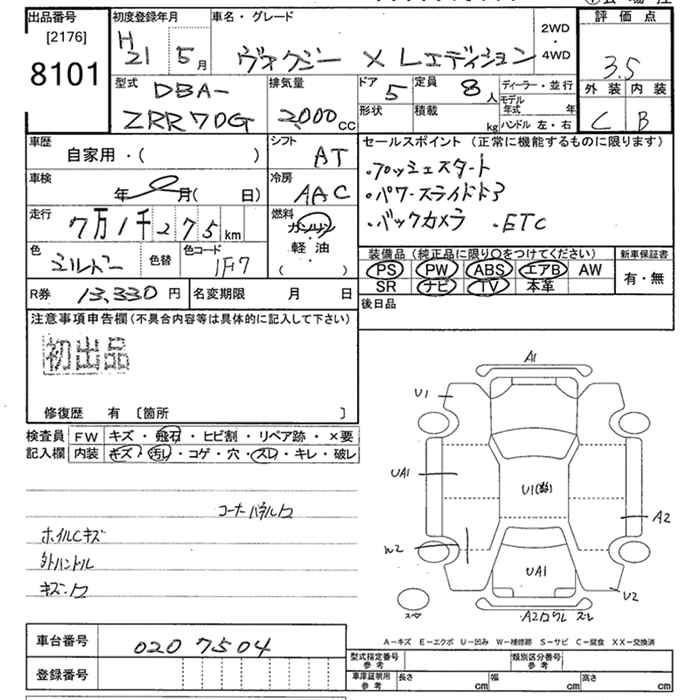 出品番号 初度登録年月 車名・グレード 2WD・4WD 評価点
[2176] H21 5月 ヴォクシー X Lエディション 3.5
8101 型式 DBA- 排気量 ドア 5 定員 8人 ディーラー・並行 外装 内装
ZRR70G 2,000cc 形状 積載 kg モデル年式 年 C B
ハンドル 左・右
車歴 シフト セールスポイント(正常に機能するものに限ります)
自家用・( ) AT ・プッシュスタート
車検 冷房 ・パワースライドドア
年 月( 日) AAC ・バックカメラ ・ETC
走行 7万1千275km 燃料 ガソリン・軽油( )
色 シルバー 色替 色コード 1F7
装備品(純正品に限り○をつけてください) 新車保証書
PS PW ABS エアB AW 有・無
SR ナビ TV 本革
R券 13,330円 名変期限 月 日 後日品
注意事項申告欄(不具合内容等は具体的に記入して下さい)
初出品
修復歴 有 [箇所 ]
検査員 FW キズ・飛石・ヒビ割・リペア跡・×要
記入欄 内装 キズ・汚し・コゲ・穴・スレ・キレ・破レ
コーナーパネルワレ
ホイルCキズ
外ハンドル
キズ・ワレ
A1
U1
UA1
U1
A2
W2
UA1
U2
A2 ワレ スレ
A-キズ E-エクボ U-凹み W-補修跡 S-サビ C-腐食 XX-交換済
車台番号 0207504
登録番号
型式指定番号 参考 類別区分番号 参考
車庫証明用 参考 長さ cm 幅 cm 高さ cm